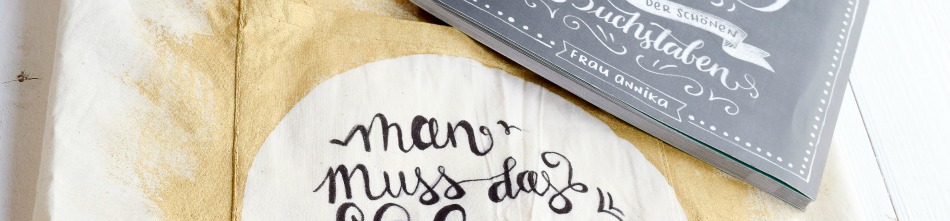 DER SCHÖNEN
Buchstaben
FRAU ANNIKA
man
muss das